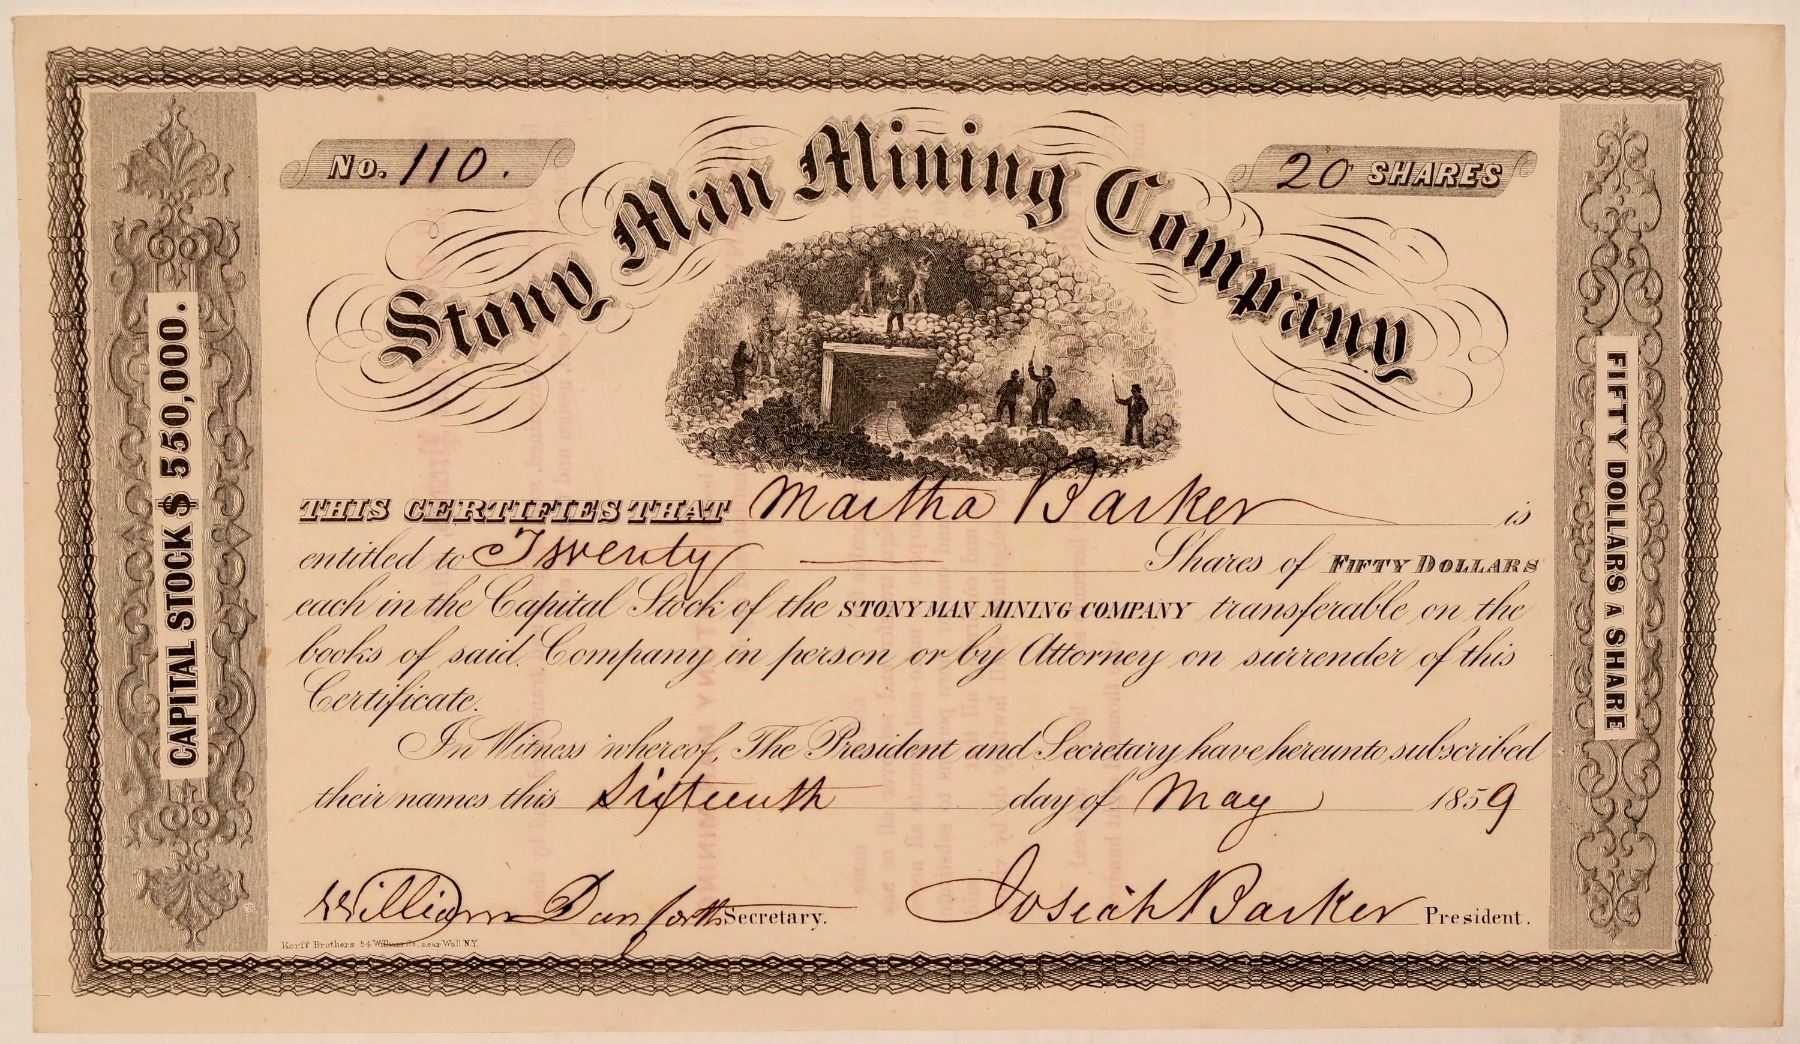 No. 110.
20 SHARES
Stony Man Mining Company
CAPITAL STOCK $ 550,000.
FIFTY DOLLARS A SHARE
THIS CERTIFIES THAT Martha Barker is
entitled to Twenty Shares of FIFTY DOLLARS
each in the Capital Stock of the STONY MAN MINING COMPANY transferable on the
books of said Company in person or by Attorney on surrender of this
Certificate.
In Witness whereof, The President and Secretary have hereunto subscribed
their names this Sixteenth day of May 1859
William Danforth Secretary.
Josiah Barker President.
Korff Brothers 54 William St., near Wall N.Y.